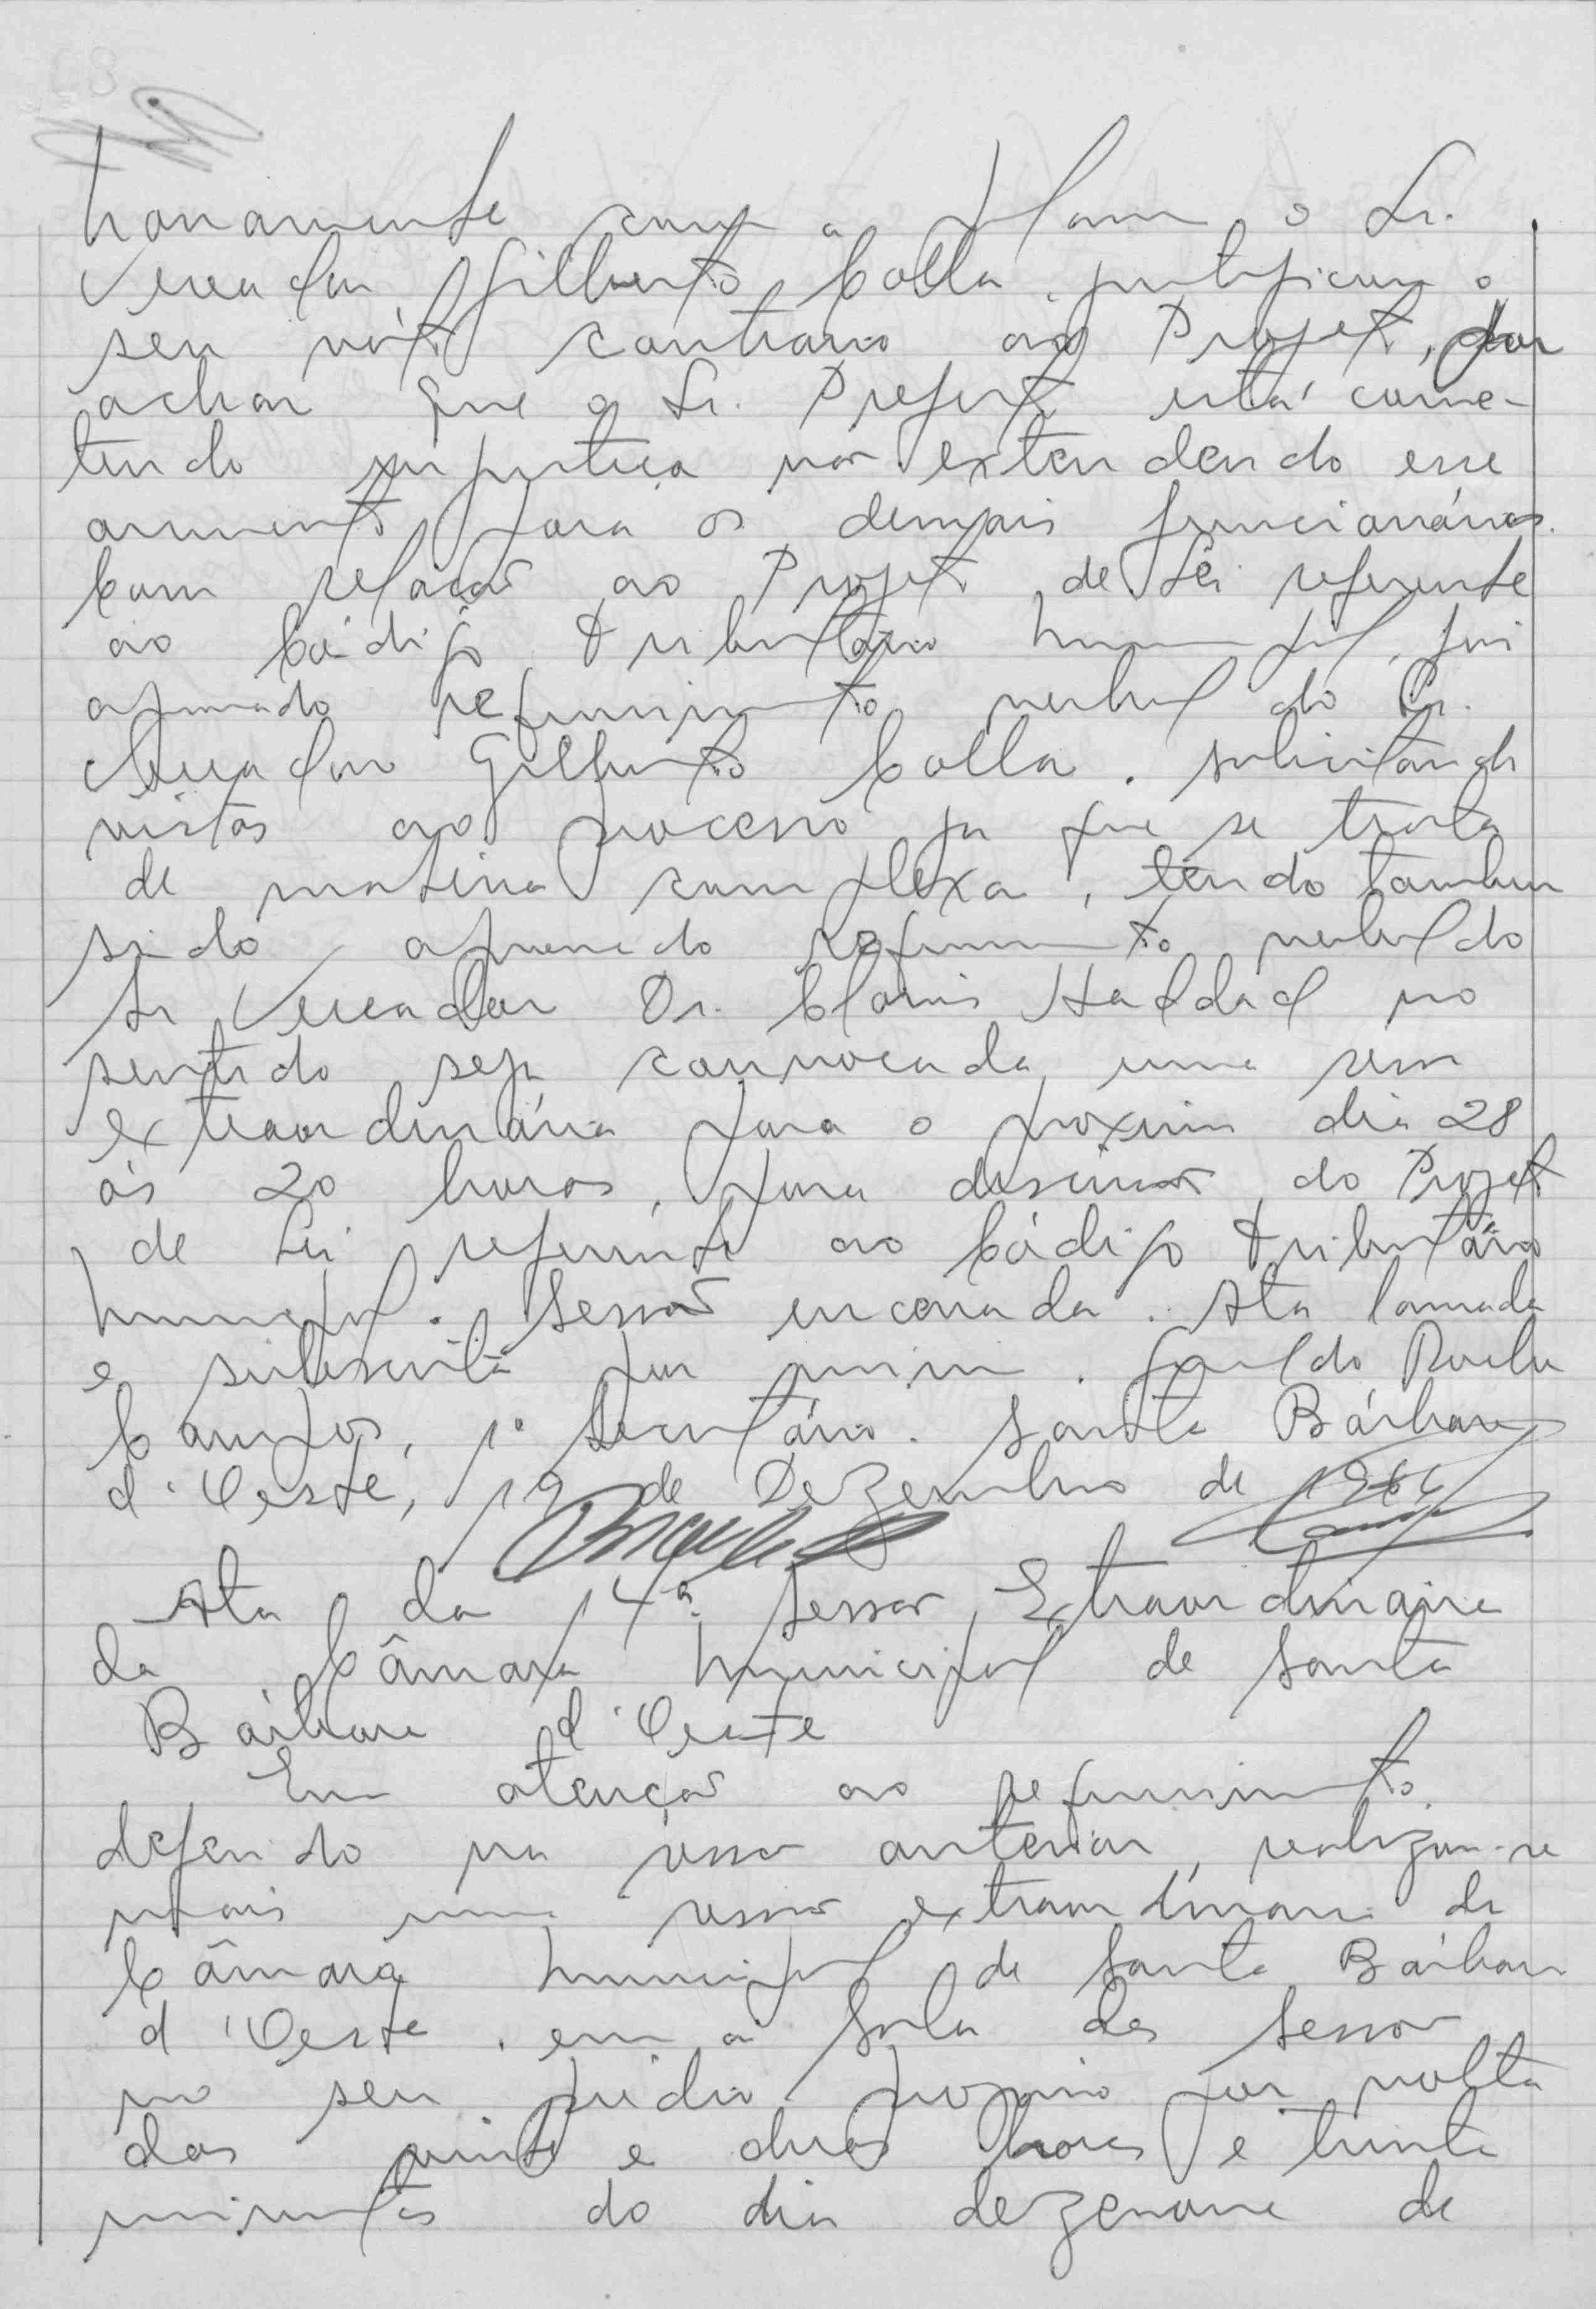 trariamente com a plano o Sr.
Vereador Gilberto Colla justificou o
seu vóto contrario ao Projeto, por
achar que o Sr. Prefeito está come-
tendo injustiça não extendendo esse
aumento para os demais funcionários.
Com relação ao Projeto de Lei referente
ao Código Tributário Municipal, foi
aprovado requerimento verbal do Sr.
Vereador Gilberto Colla, solicitando
vistas ao processo ja que se trata
de materia complexa, tendo tambem
sido aprovado requerimento verbal do
Sr Vereador Dr. Clovis Haddad no
sentido seja convocada uma sessão
extraordinária para o proximo dia 28
ás 20 horas, para discussão do Projeto
de Lei referente ao Código Tributário
Municipal. Sessão encerrada. Ata lavrada
e subscrita por mim, Rocha
Campos, 1º Secretário. Santa Bárbara
d'Oeste, 19 de Dezembro de 1966
Ata da 14ª Sessão Extraordinaria
da Câmara Municipal de Santa
Bárbara d'Oeste
Em atenção ao requerimento
deferido na sessão anterior, realizou-se
mais uma sessão extraordinaria da
Câmara Municipal de Santa Bárbara
d'Oeste, em a Sala das Sessão
no seu prédio proprio por volta
das vinte e duas horas e trinta
minutos do dia dezenove de